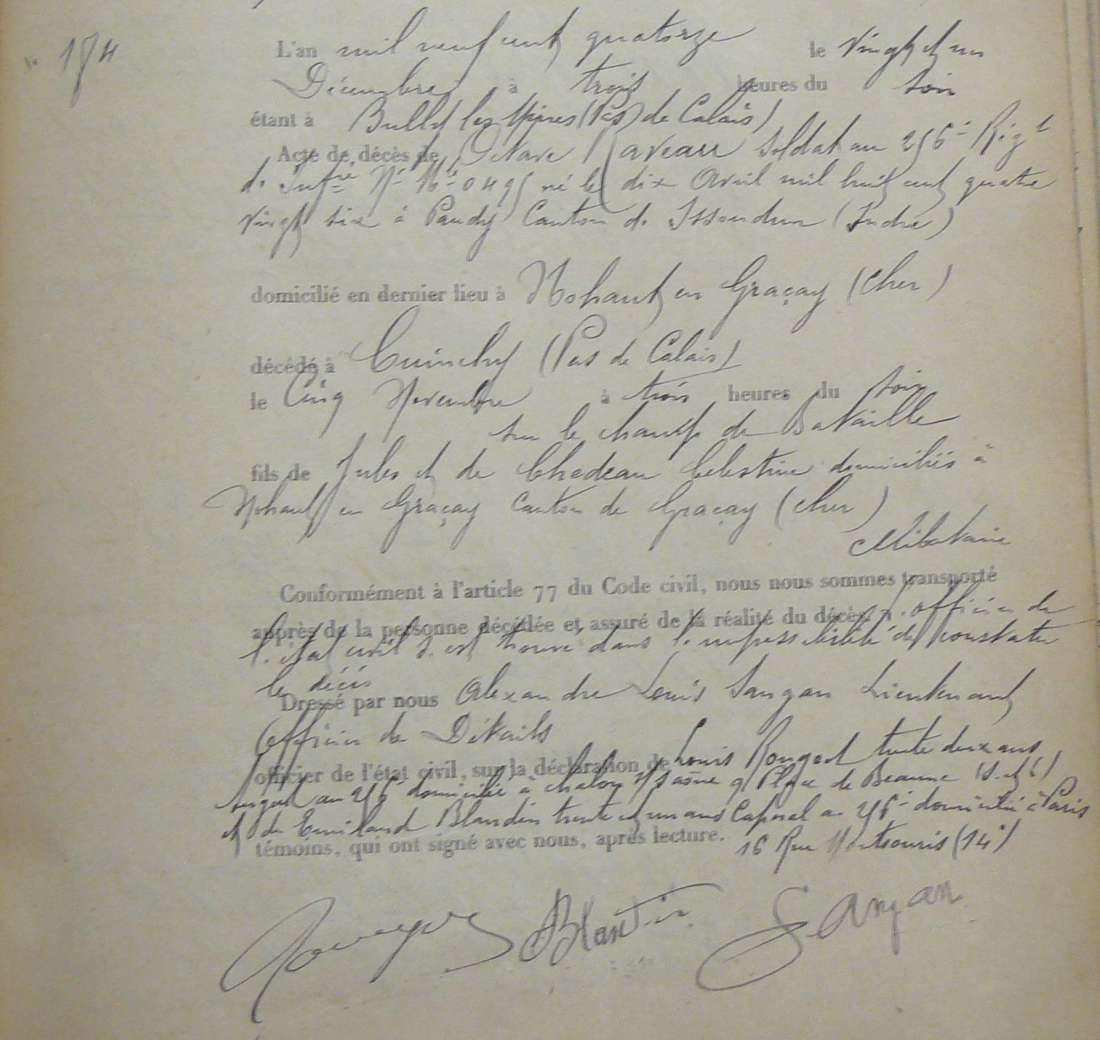 174
L'an mil neuf cent quatorze le vingt et un
Décembre à trois heures du soir
étant à Bully les Mines (Pas de Calais)
Acte de décès de Octave Raveau Soldat au 256e Régt
de Infrie Nº Mle 0495 né le dix Avril mil huit cent quatre
vingt six à Paudy Canton de Issoudun (Indre)
domicilié en dernier lieu à Nohant en Graçay (Cher)
décédé à Cuinchy (Pas de Calais)
le Cinq Novembre à trois heures du soir
sur le champ de Bataille
fils de Jules et de Chedeau Celestine domiciliés à
Nohant en Graçay Canton de Graçay (Cher)
Célibataire
Conformément à l'article 77 du Code civil, nous nous sommes transporté
auprès de la personne décédée et assuré de la réalité du décès. l'officier de
l'état civil s'est trouvé dans l'impossibilité de constater
le décès
Dressé par nous Alexandre Louis Sangan Lieutenant
Officier de Détails
officier de l'état civil, sur la déclaration de Louis Rouget trente deux ans
Sergent au 256e domicilié à Chalon s/Saône 9 Place de Beaune (S. et L)
et de Emiland Blandin trente et un ans Caporal au 256e domicilié à Paris
témoins, qui ont signé avec nous, après lecture. 16 Rue Montsouris (14e)
Rouget Blandin Sangan